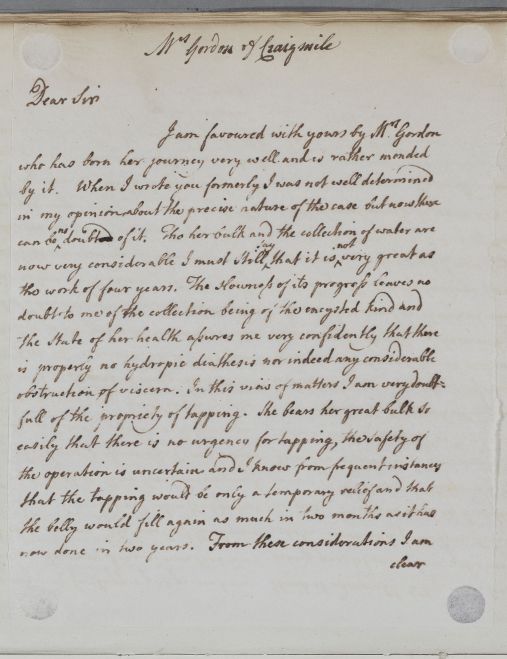 Mrs Gordon of Craigmile
Dear Sir
I am favoured with yours by Mrs Gordon
who has born her journey very well and is rather mended
by it. When I wrote you formerly I was not well determined
in my opinion about the precise nature of the case but now there
can be no doubt of it. Tho her bulk and the collection of water are
now very considerable I must still say that it is not very great as
the work of four years. The slowness of its progress leaves no
doubt to me of the collection being of the encysted kind and
the State of her health assures me very confidently that there
is properly no hydropic diathesis nor indeed any considerable
obstruction of viscera. In this view of matters I am very doubt=
full of the propriety of tapping. She bears her great bulk so
easily that there is no urgency for tapping, the safety of
the operation is uncertain and I know from frequent instances
that the tapping would be only a temporary relief and that
the belly would fill again as much in two months as it has
now done in two years. From these considerations I am
clear